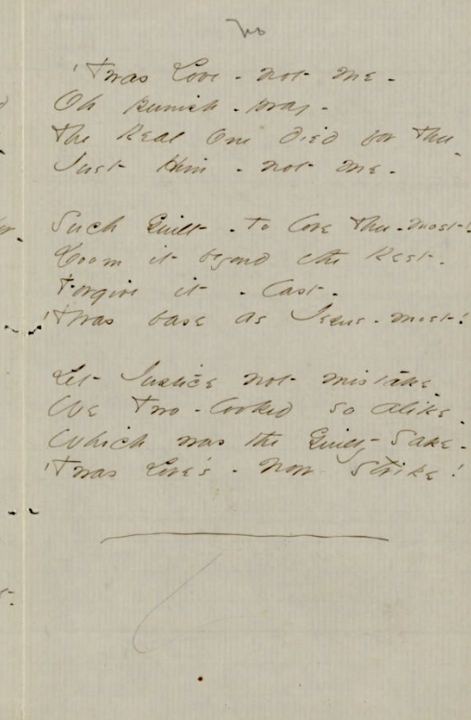 no
'Twas Love - not me -
Oh punish - pray -
The Real one died for Thee
Just Him - not me -
Such Guilt - to love Thee - most!
Doom it beyond the Rest -
Forgive it - last -
'Twas base as Jesus - most!
Let Justice not mistake
We Two - looked so alike
Which was the Guilty Sake -
'Twas Love's - Now Strike!